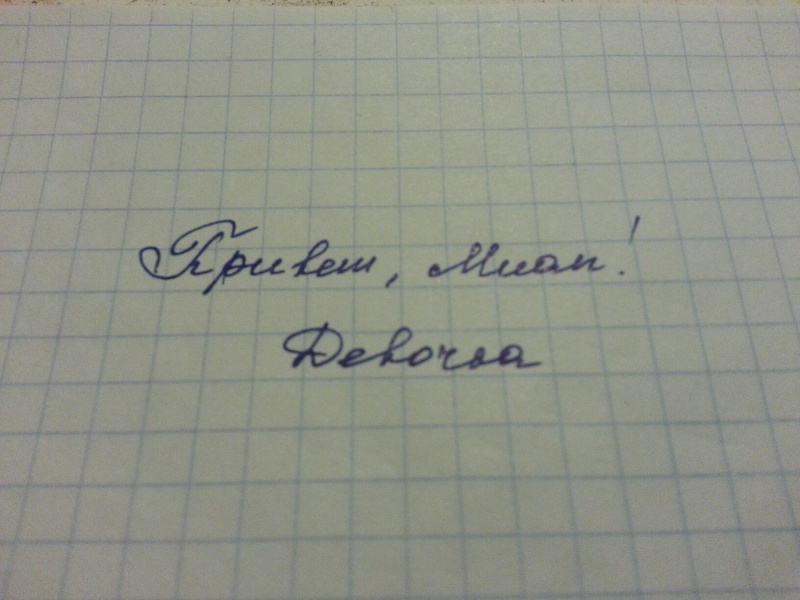 Привет, Миал!
Девочка